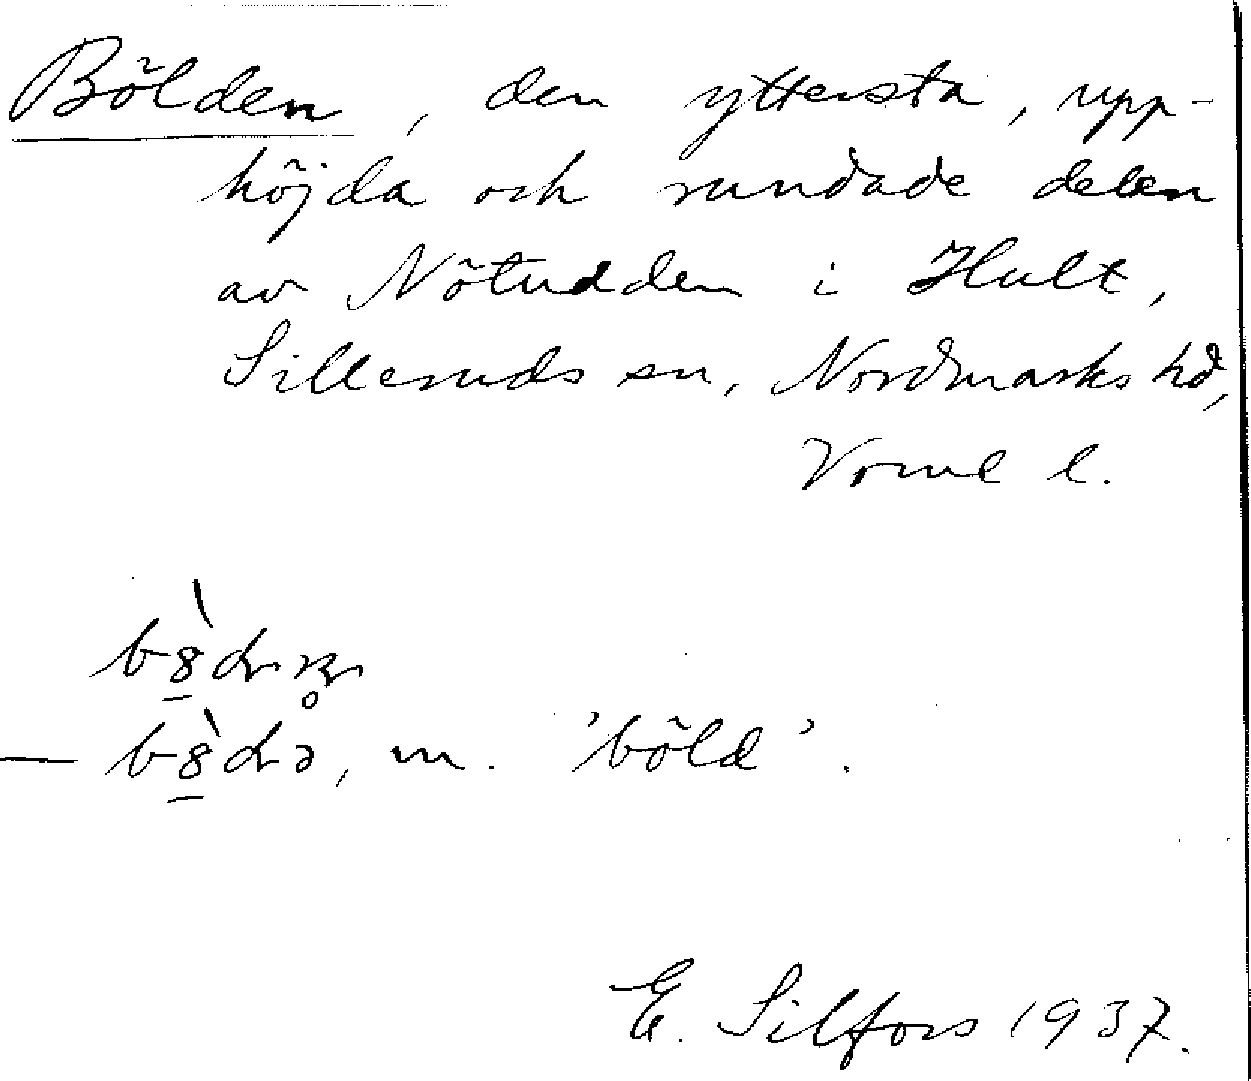 Bölden, den yttersta, upp-
höjda och rundade delen
av Nötudden i Hult,
Silleruds sn, Nordmarks hd,
Värml l.
— , m. 'böld'.
E. Silfors 1937.